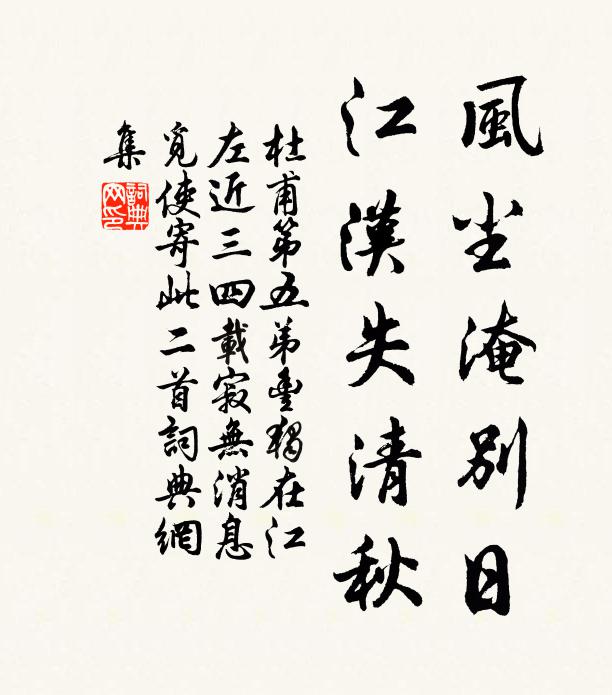 風尘淹別日
江漢失清秋
杜甫第五弟豊獨在江
左近三四載寂無消息
覓使寄此二首詞典網
集
詞典
网印